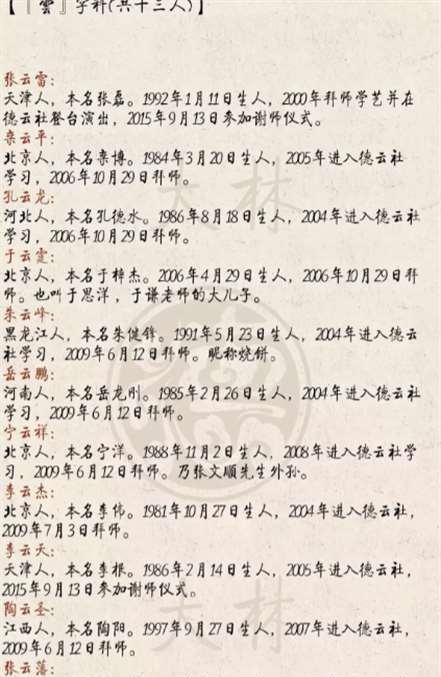 【『雲』字科(共十三人)】
张云雷：
天津人，本名张磊。1992年1月11日生人，2000年拜师学艺并在
德云社登台演出，2015年9月13日参加谢师仪式。
栾云平：
北京人，本名栾博。1984年3月20日生人，2005年进入德云社
学习，2006年10月29日拜师。
孔云龙：
河北人，本名孔德水。1986年8月18日生人，2004年进入德云社
学习，2006年10月29日拜师。
于云霆：
北京人，本名于梓杰。2006年4月29日生人，2006年10月29日拜
师。也叫于思洋，于谦老师的大儿子。
朱云峰：
黑龙江人，本名朱健锋。1991年5月23日生人，2004年进入德云
社学习，2009年6月12日拜师。昵称烧饼。
岳云鹏：
河南人，本名岳龙刚。1985年2月26日生人，2004年进入德云社
学习，2009年6月12日拜师。
宁云祥：
北京人，本名宁洋。1988年11月2日生人，2008年进入德云社学
习，2009年6月12日拜师。乃张文顺先生外孙。
李云杰：
北京人，本名李伟。1981年10月27日生人，2004年进入德云社，
2009年7月3日拜师。
李云天：
天津人，本名李根。1986年2月14日生人，2005年进入德云社，
2015年9月13日参加谢师仪式。
陶云圣：
江西人，本名陶阳。1997年9月27日生人，2007年进入德云社，
2009年6月12日拜师。
张云藩：
天林
天林